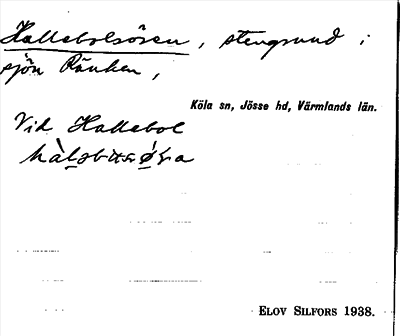 Hallebolsören, stengrund i
sjön Ränken,
Köla sn, Jösse hd, Värmlands län.
Vid Hallebol
ELOV SILFORS 1938.